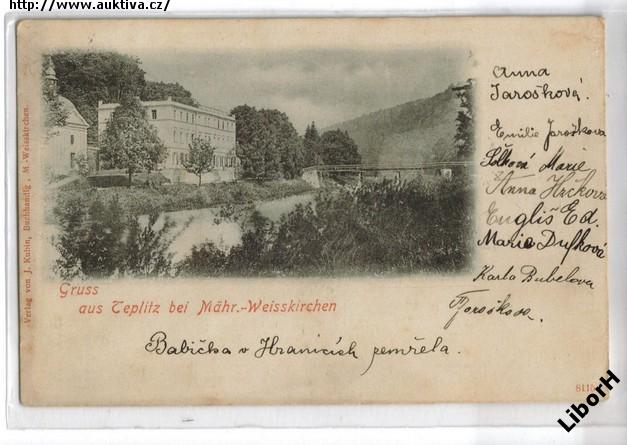 http://www.auktiva.cz/
Anna
Jarošková.
Emilie Jaroškova
Marie
Anna
Engliš Ed.
Marie Dufková
Karla Bubelova
Verlag von J. Kubin, Buchhandlg., M.-Weisskirchen.
Gruss
aus Teplitz bei Mähr.-Weisskirchen
Babička v Hranicích zemřela.
LiborH